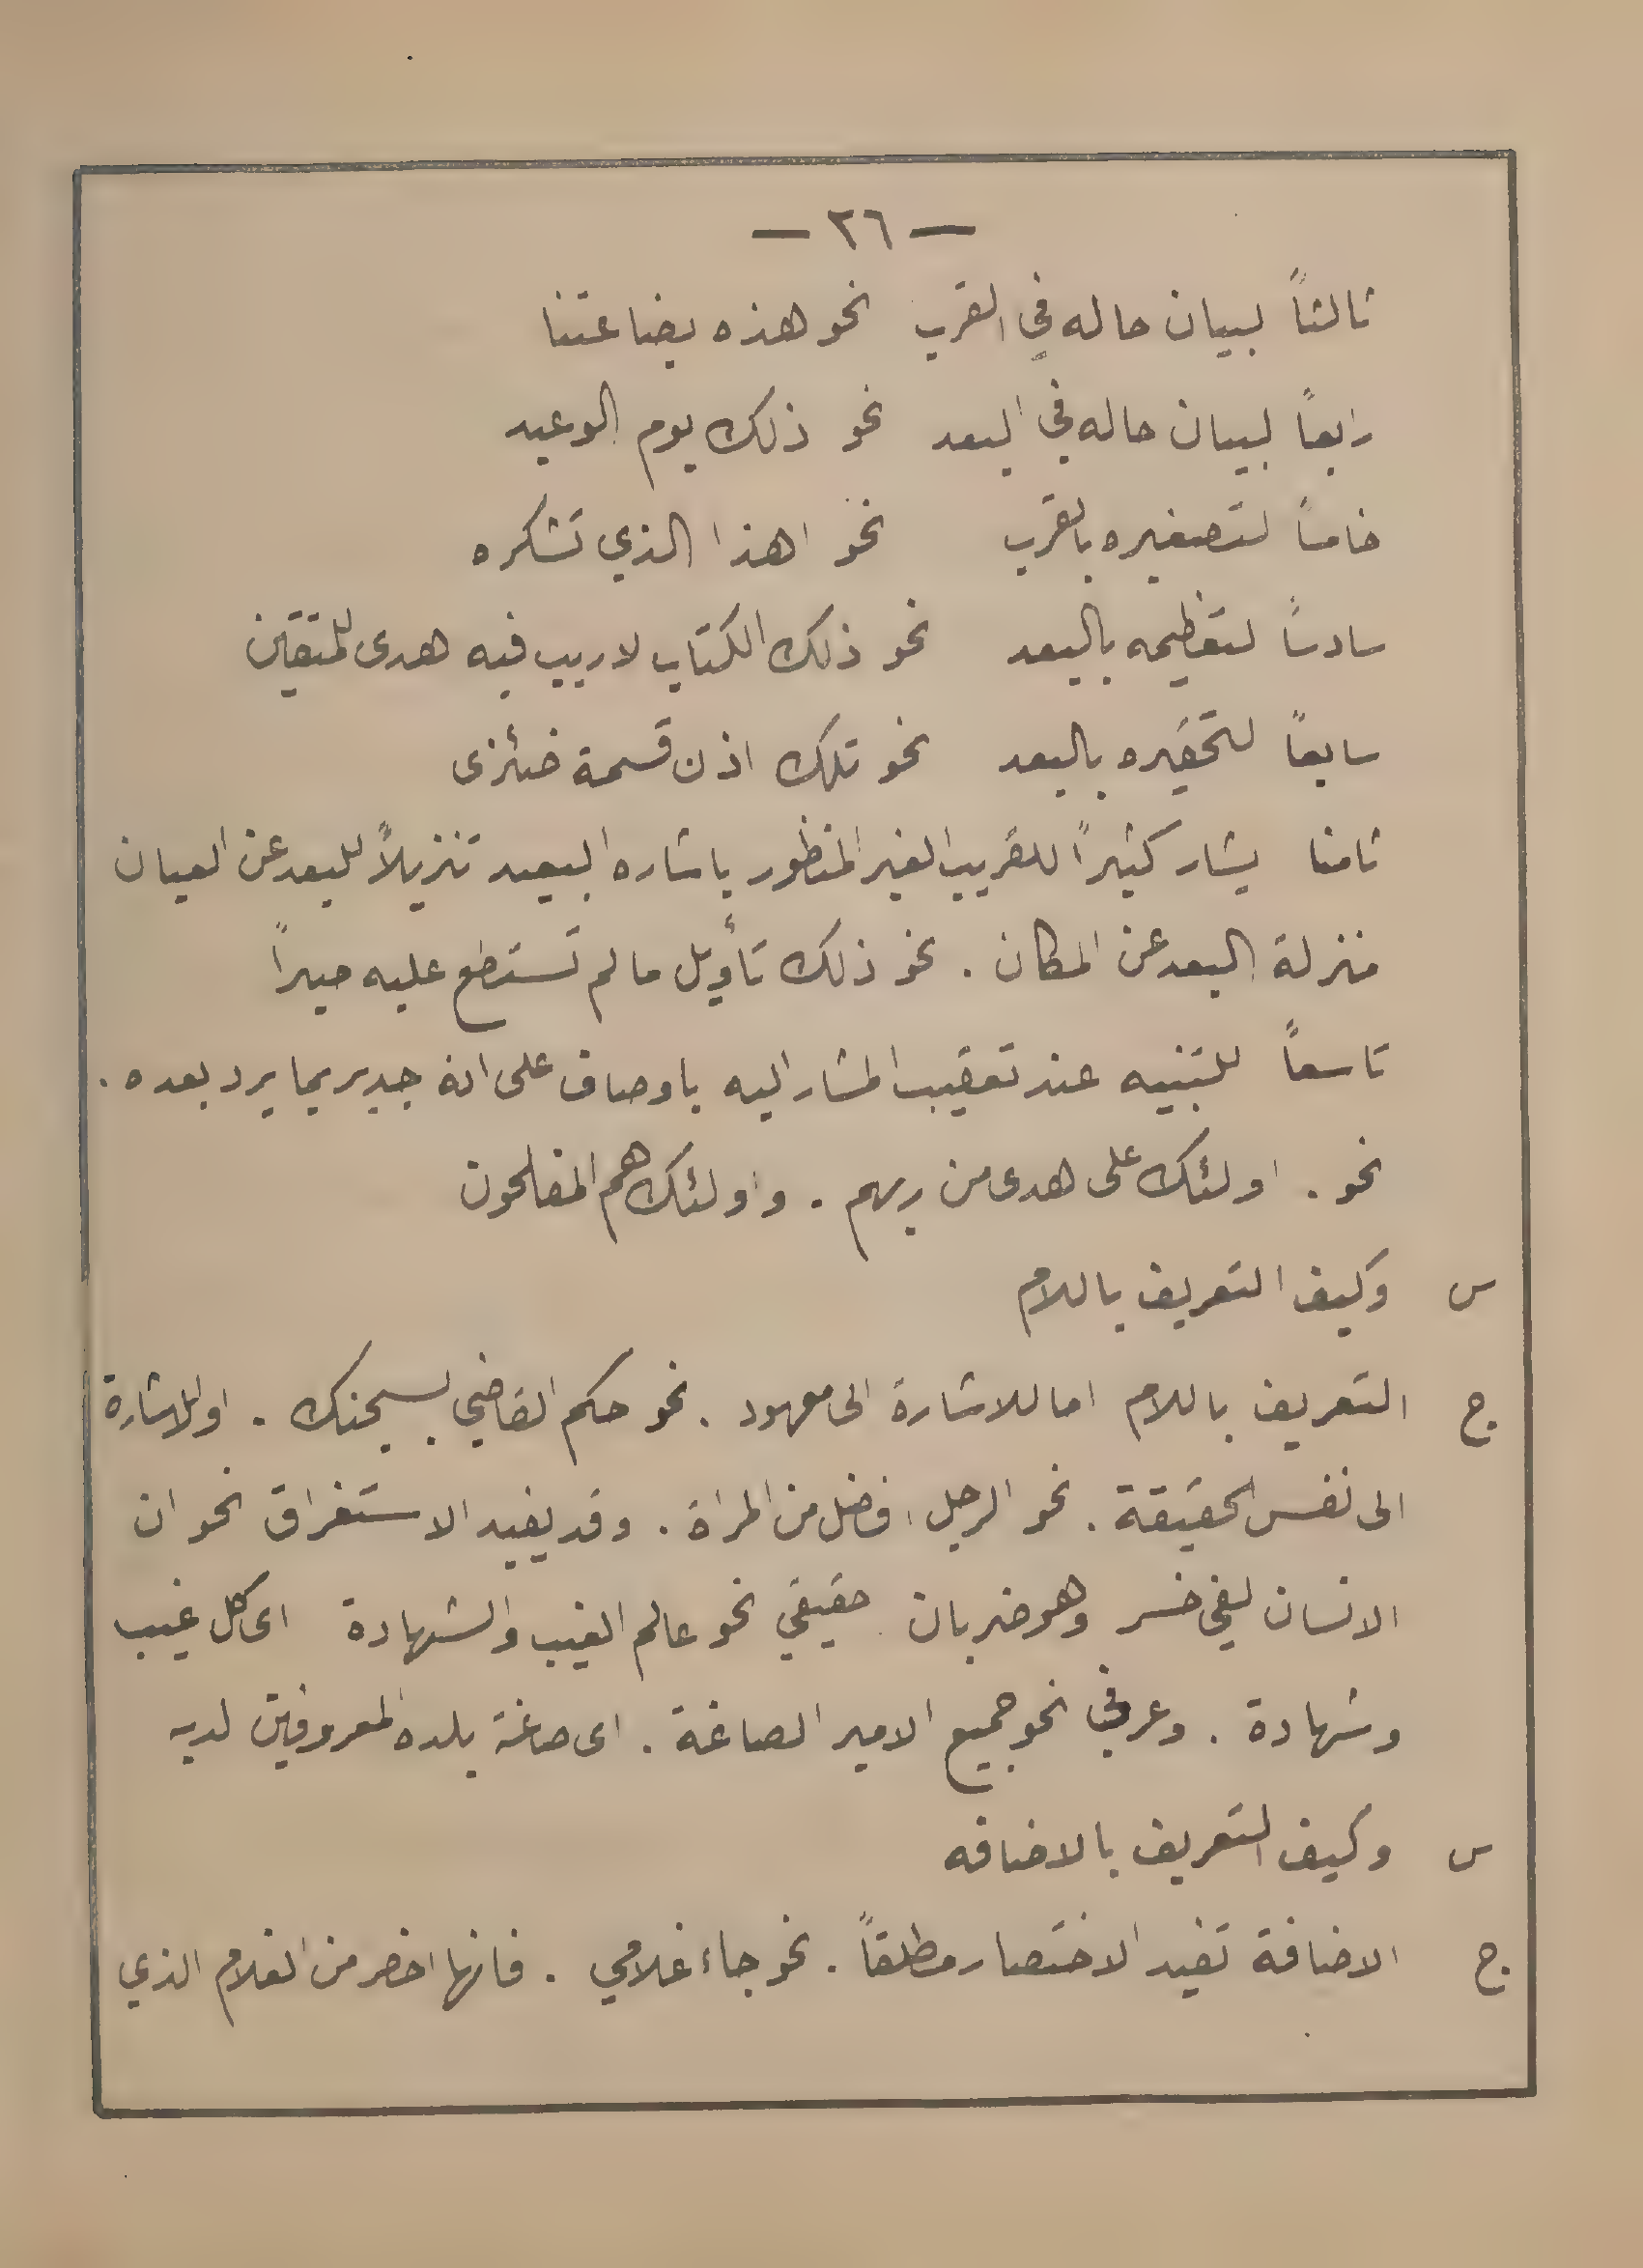 — ٢٦ —
ثالثاً لبيان حاله في القرب نحو هذه بضاعتنا
رابعاً لبيان حاله في البعد نحو ذلك يوم الوعيد
خامساً لتصغيره بالقرب نحو اهذا الذي تشكره
سادساً لتعظيمه بالبعد نحو ذلك الكتاب لا ريب فيه هدى للمتقين
سابعاً لتحقيره بالبعد نحو تلك اذن قسمة ضئزى
ثامنا يشار كثيراً للقريب الغير المنظور باشاره البعيد تنزيلاً للبعد عن العيان
منزلة البعد عن المكان . نحو ذلك تأويل ما لم تستطع عليه صبراً
تاسعاً للتنبيه عند تعقيب المشار اليه باوصاف على انه جدير بما يرد بعده .
نحو . اولئك على هدى من ربهم . واولئك هم المفلحون
س وكيف التعريف باللام
ج التعريف باللام اما للاشارة الى معهود . نحو حكم القاضي بسجنك . او للاشارة
الى نفس الحقيقة . نحو الرجل افضل من المراة . وقد يفيد الاستغراق نحو ان
الانسان لفي خسر وهو ضربان حقيقي نحو عالم الغيب والشهادة اى كل غيب
وشهادة . وعرفي نحو جميع الامير الصاغة . اى صاغة بلده المعروفين لديه
س وكيف التعريف بالاضافه
ج الاضافة تفيد الاختصار مطلقاً . نحو جاء غلامي . فانها اخصر من الغلام الذي